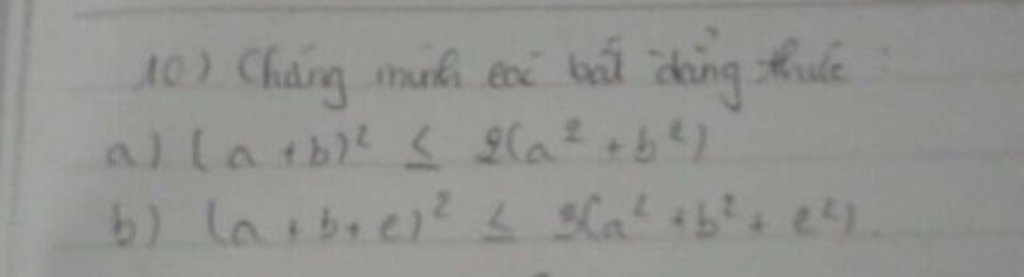 10) Chứng minh các bất đẳng thức :
a) (a + b)² ≤ 2(a² + b²)
b) (a + b + c)² ≤ 3(a² + b² + c²).